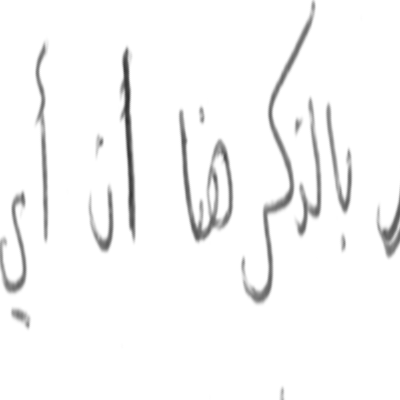 بالذكر هنا أن أي